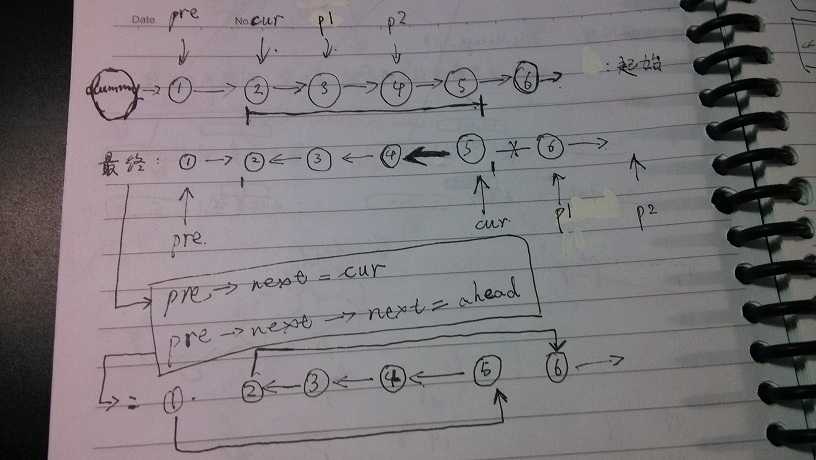 Date No.
pre cur p1 p2
dummy → ① → ② → ③ → ④ → ⑤ → ⑥ → : 起始
最终: ① → ② ← ③ ← ④ ← ⑤ × ⑥ →
pre. cur p1 p2
pre → next = cur
pre → next → next = ahead
⇒ = ① . ② ← ③ ← ④ ← ⑤ ⑥ →